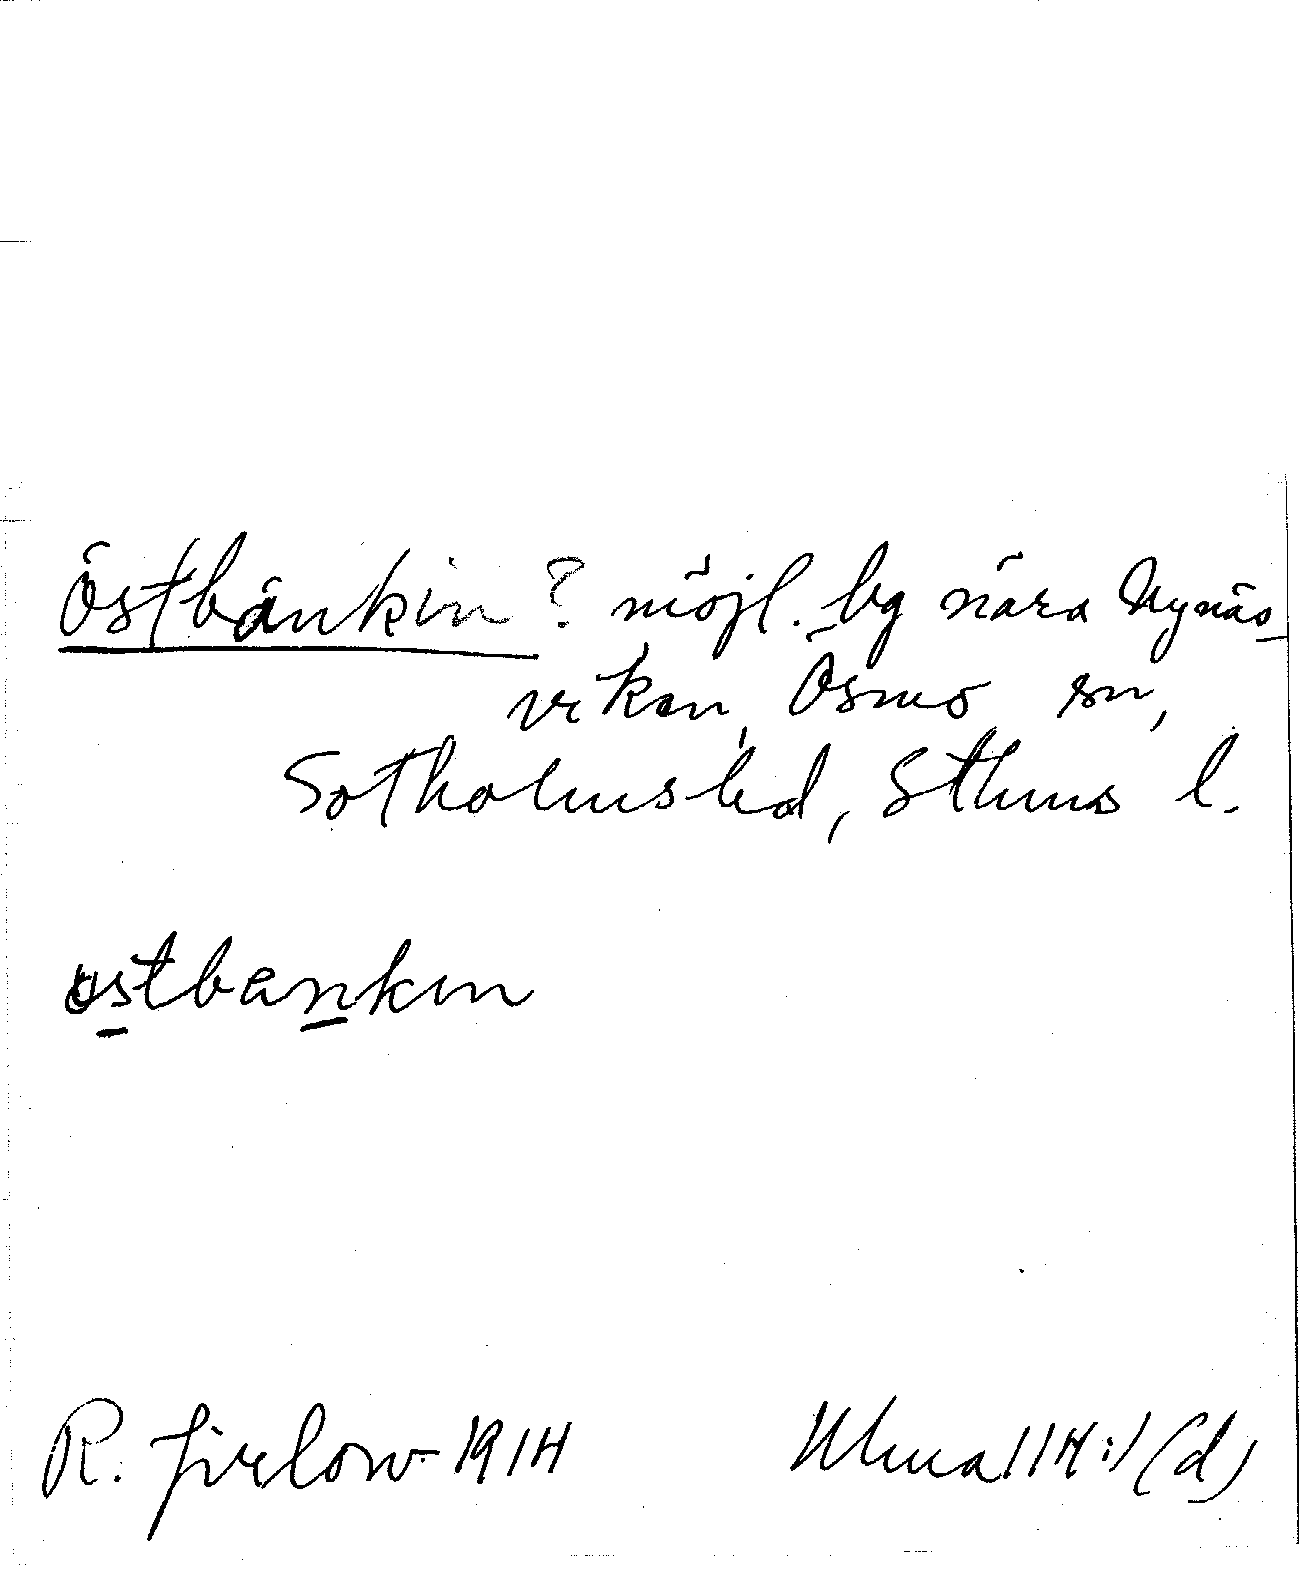 Östbänkin ? möjl. bg nära Nynäs-
viken, Ösmo sn,
Sotholms hd, Sthms l.
östbankin
R. Jirlow 1914
Ulma 114:1 (d)